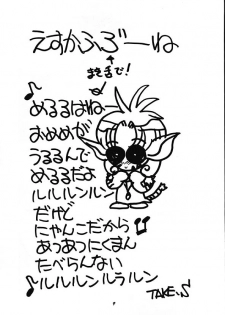 えすかふぶーね
まき舌で!
♪めるるはねー
おめめが
うるるんで
めるるだよ
ルルルンルン
だけど
にゃんこだから
あつあつにくまん
たべらんない
♪ルルルンルラルン
TAKE.S